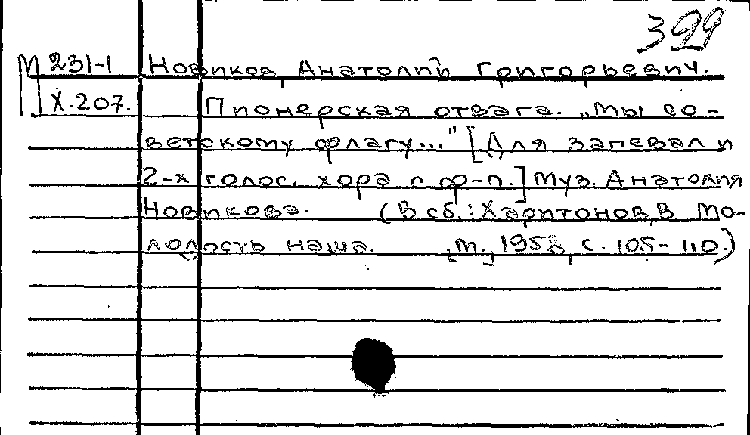 399
М 231-1 Новиков, Анатолий Григорьевич.
Х.207. Пионерская отвага. „Мы со-
ветскому флагу..." [Для запевал и
2-х голос. хора с ф-п.] Муз. Анатолия
Новикова. (В сб.: Харитонов, В. Мо-
лодость наша. [М.], 1958, с. 105-110.)